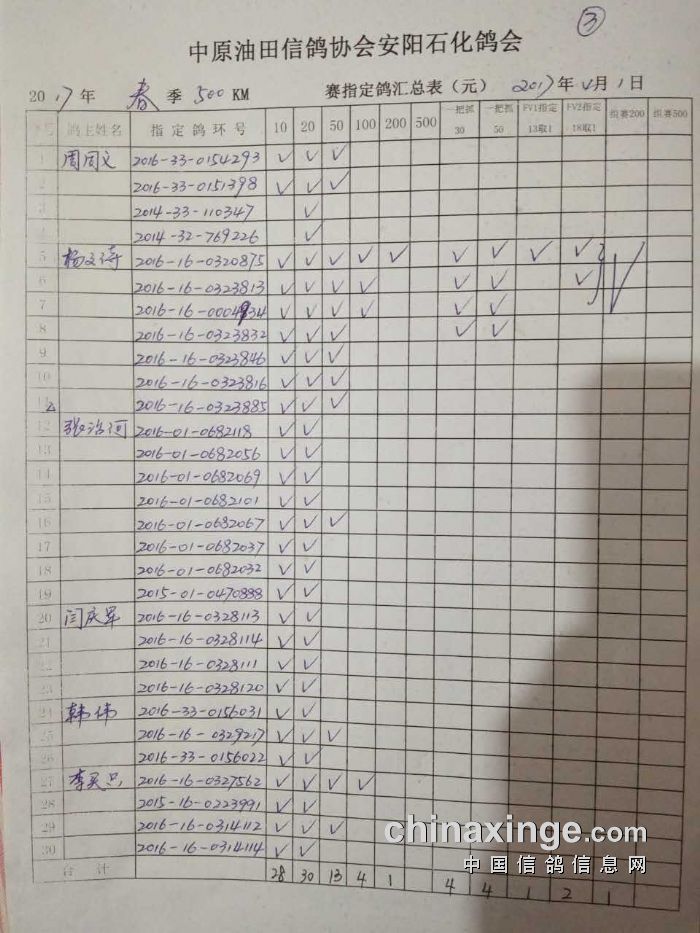 ③
中原油田信鸽协会安阳石化鸽会
2017年 春季 500KM 赛指定鸽汇总表（元） 2017年4月1日
鸽主姓名 指定鸽环号 10 20 50 100 200 500 一把抓30 一把抓50 FV1指定13取1 FV2指定18取1 组赛200 组赛500
1 周同义 2016-33-0154293 ✓ ✓ ✓
2 2016-33-0151398 ✓ ✓ ✓
3 2014-33-110347 ✓
4 2014-32-769226 ✓
5 杨文 2016-16-0320875 ✓ ✓ ✓ ✓ ✓ ✓ ✓ ✓ ✓ ✓
6 2016-16-0323813 ✓ ✓ ✓ ✓ ✓ ✓ ✓
7 2016-16-0004934 ✓ ✓ ✓ ✓ ✓ ✓
8 2016-16-0323832 ✓ ✓ ✓ ✓ ✓
9 2016-16-0323846 ✓ ✓ ✓
10 2016-16-0323816 ✓ ✓ ✓
11 2016-16-0323885 ✓ ✓ ✓
12 张洪河 2016-01-0682118 ✓ ✓
13 2016-01-0682056 ✓ ✓
14 2016-01-0682069 ✓ ✓
15 2016-01-0682101 ✓ ✓
16 2016-01-0682067 ✓ ✓ ✓
17 2016-01-0682037 ✓ ✓
18 2016-01-0682032 ✓ ✓
19 2015-01-0470888 ✓ ✓
20 闫庆军 2016-16-0328113 ✓ ✓
21 2016-16-0328114 ✓ ✓
22 2016-16-0328111 ✓ ✓
23 2016-16-0328120 ✓ ✓
24 韩伟 2016-33-0156031 ✓ ✓
25 2016-16-0329217 ✓ ✓ ✓
26 2016-33-0156022 ✓ ✓
27 李 2016-16-0327562 ✓ ✓ ✓ ✓
28 2015-16-0223991 ✓ ✓
29 2016-16-0314112 ✓ ✓ ✓
30 2016-16-0314114 ✓ ✓
合计 28 30 13 4 1 4 4 1 2 1
chinaxinge.com
中国信鸽信息网